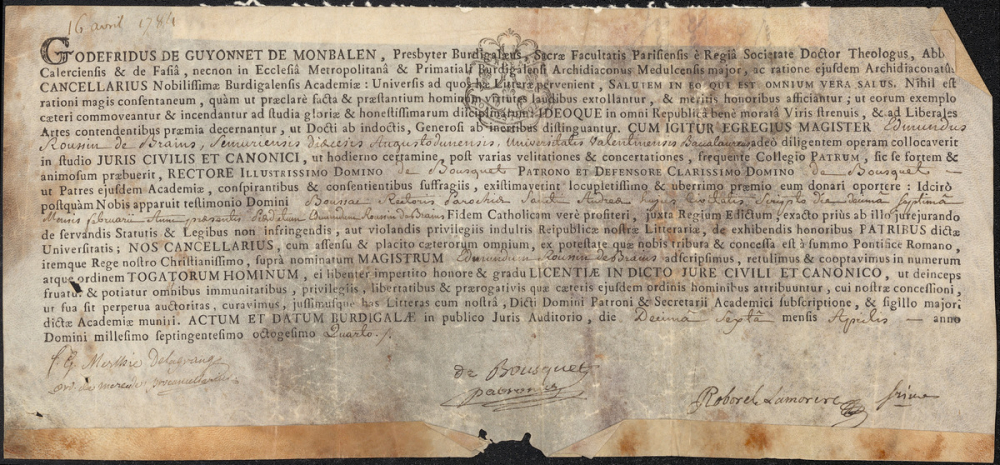 16 avril 1784
GODEFRIDUS DE GUYONNET DE MONBALEN, Presbyter Burdigalæus, Sacræ Facultatis Parisiensis è Regiâ Societate Doctor Theologus, Abb
Calerciensis & de Fasiâ, necnon in Ecclesiâ Metropolitanâ & Primatiali Burdigalensi Archidiaconus Medulcensis major, ac ratione ejusdem Archidiaconatûs
CANCELLARIUS Nobilissimæ Burdigalensis Academiæ: Universis ad quos hæ Litteræ pervenient, SALUTEM IN EO QUI EST OMNIUM VERA SALUS. Nihil est
rationi magis consentaneum, quàm ut præclarè facta & præstantium hominum virtutes laudibus extollantur, & meritis honoribus afficiantur; ut eorum exemplo
cæteri commoveantur & incendantur ad studia gloriæ & honestissimarum disciplinarum: IDEOQUE in omni Republicâ bene moratâ Viris strenuis, & ad Liberales
Artes contendentibus præmia decernuntur, ut Docti ab indoctis, Generosi ab inertibus distinguantur. CUM IGITUR EGREGIUS MAGISTER Edmundus
Rousin de Brains, Semuriensis diœcesis Augustodunensis, Universitatis Valentinensis Baccalaureus adeò diligentem operam collocaverit
in studio JURIS CIVILIS ET CANONICI, ut hodierno certamine, post varias velitationes & concertationes, frequente Collegio PATRUM, sic se fortem &
animosum præbuerit, RECTORE ILLUSTRISSIMO DOMINO de Bousquet PATRONO ET DEFENSORE CLARISSIMO DOMINO de Bousquet
ut Patres ejusdem Academiæ, conspirantibus & consentientibus suffragiis, existimaverint locupletissimo & uberrimo præmio eum donari oportere: Idcirò
postquàm Nobis apparuit testimonio Domini Boussac Rectoris Parochiæ Sancti Andreæ civitatis scripto die decimâ septimâ
Mensis februarii Anni præsentis Edmundum Rousin de Brains Fidem Catholicam verè profiteri, juxta Regium Edictum, exacto priùs ab illo jurejurando
de servandis Statutis & Legibus non infringendis, aut violandis privilegiis indultis Reipublicæ nostræ Litterariæ, de exhibendis honoribus PATRIBUS dictæ
Universitatis; NOS CANCELLARIUS, cum assensu & placito cæterorum omnium, ex potestate quæ nobis tributa & concessa est à summo Pontifice Romano,
itemque Rege nostro Christianissimo, suprà nominatum MAGISTRUM Edmundum Rousin de Brains adscripsimus, retulimus & cooptavimus in numerum
atque ordinem TOGATORUM HOMINUM, ei libenter impertito honore & gradu LICENTIÆ IN DICTO JURE CIVILI ET CANONICO, ut deinceps
fruatur & potiatur omnibus immunitatibus, privilegiis, libertatibus & prærogativis quæ cæteris ejusdem ordinis hominibus attribuuntur, cui nostræ concessioni,
ut sua sit perpetua auctoritas, curavimus, jussimusque has Litteras cum nostrâ, Dicti Domini Patroni & Secretarii Academici subscriptione, & sigillo majori
dictæ Academiæ muniri. ACTUM ET DATUM BURDIGALÆ in publico Juris Auditorio, die Decimâ Sextâ mensis Aprilis anno
Domini millesimo septingentesimo octogesimo Quarto
de Bousquet
patronus
Roborel Lamorere